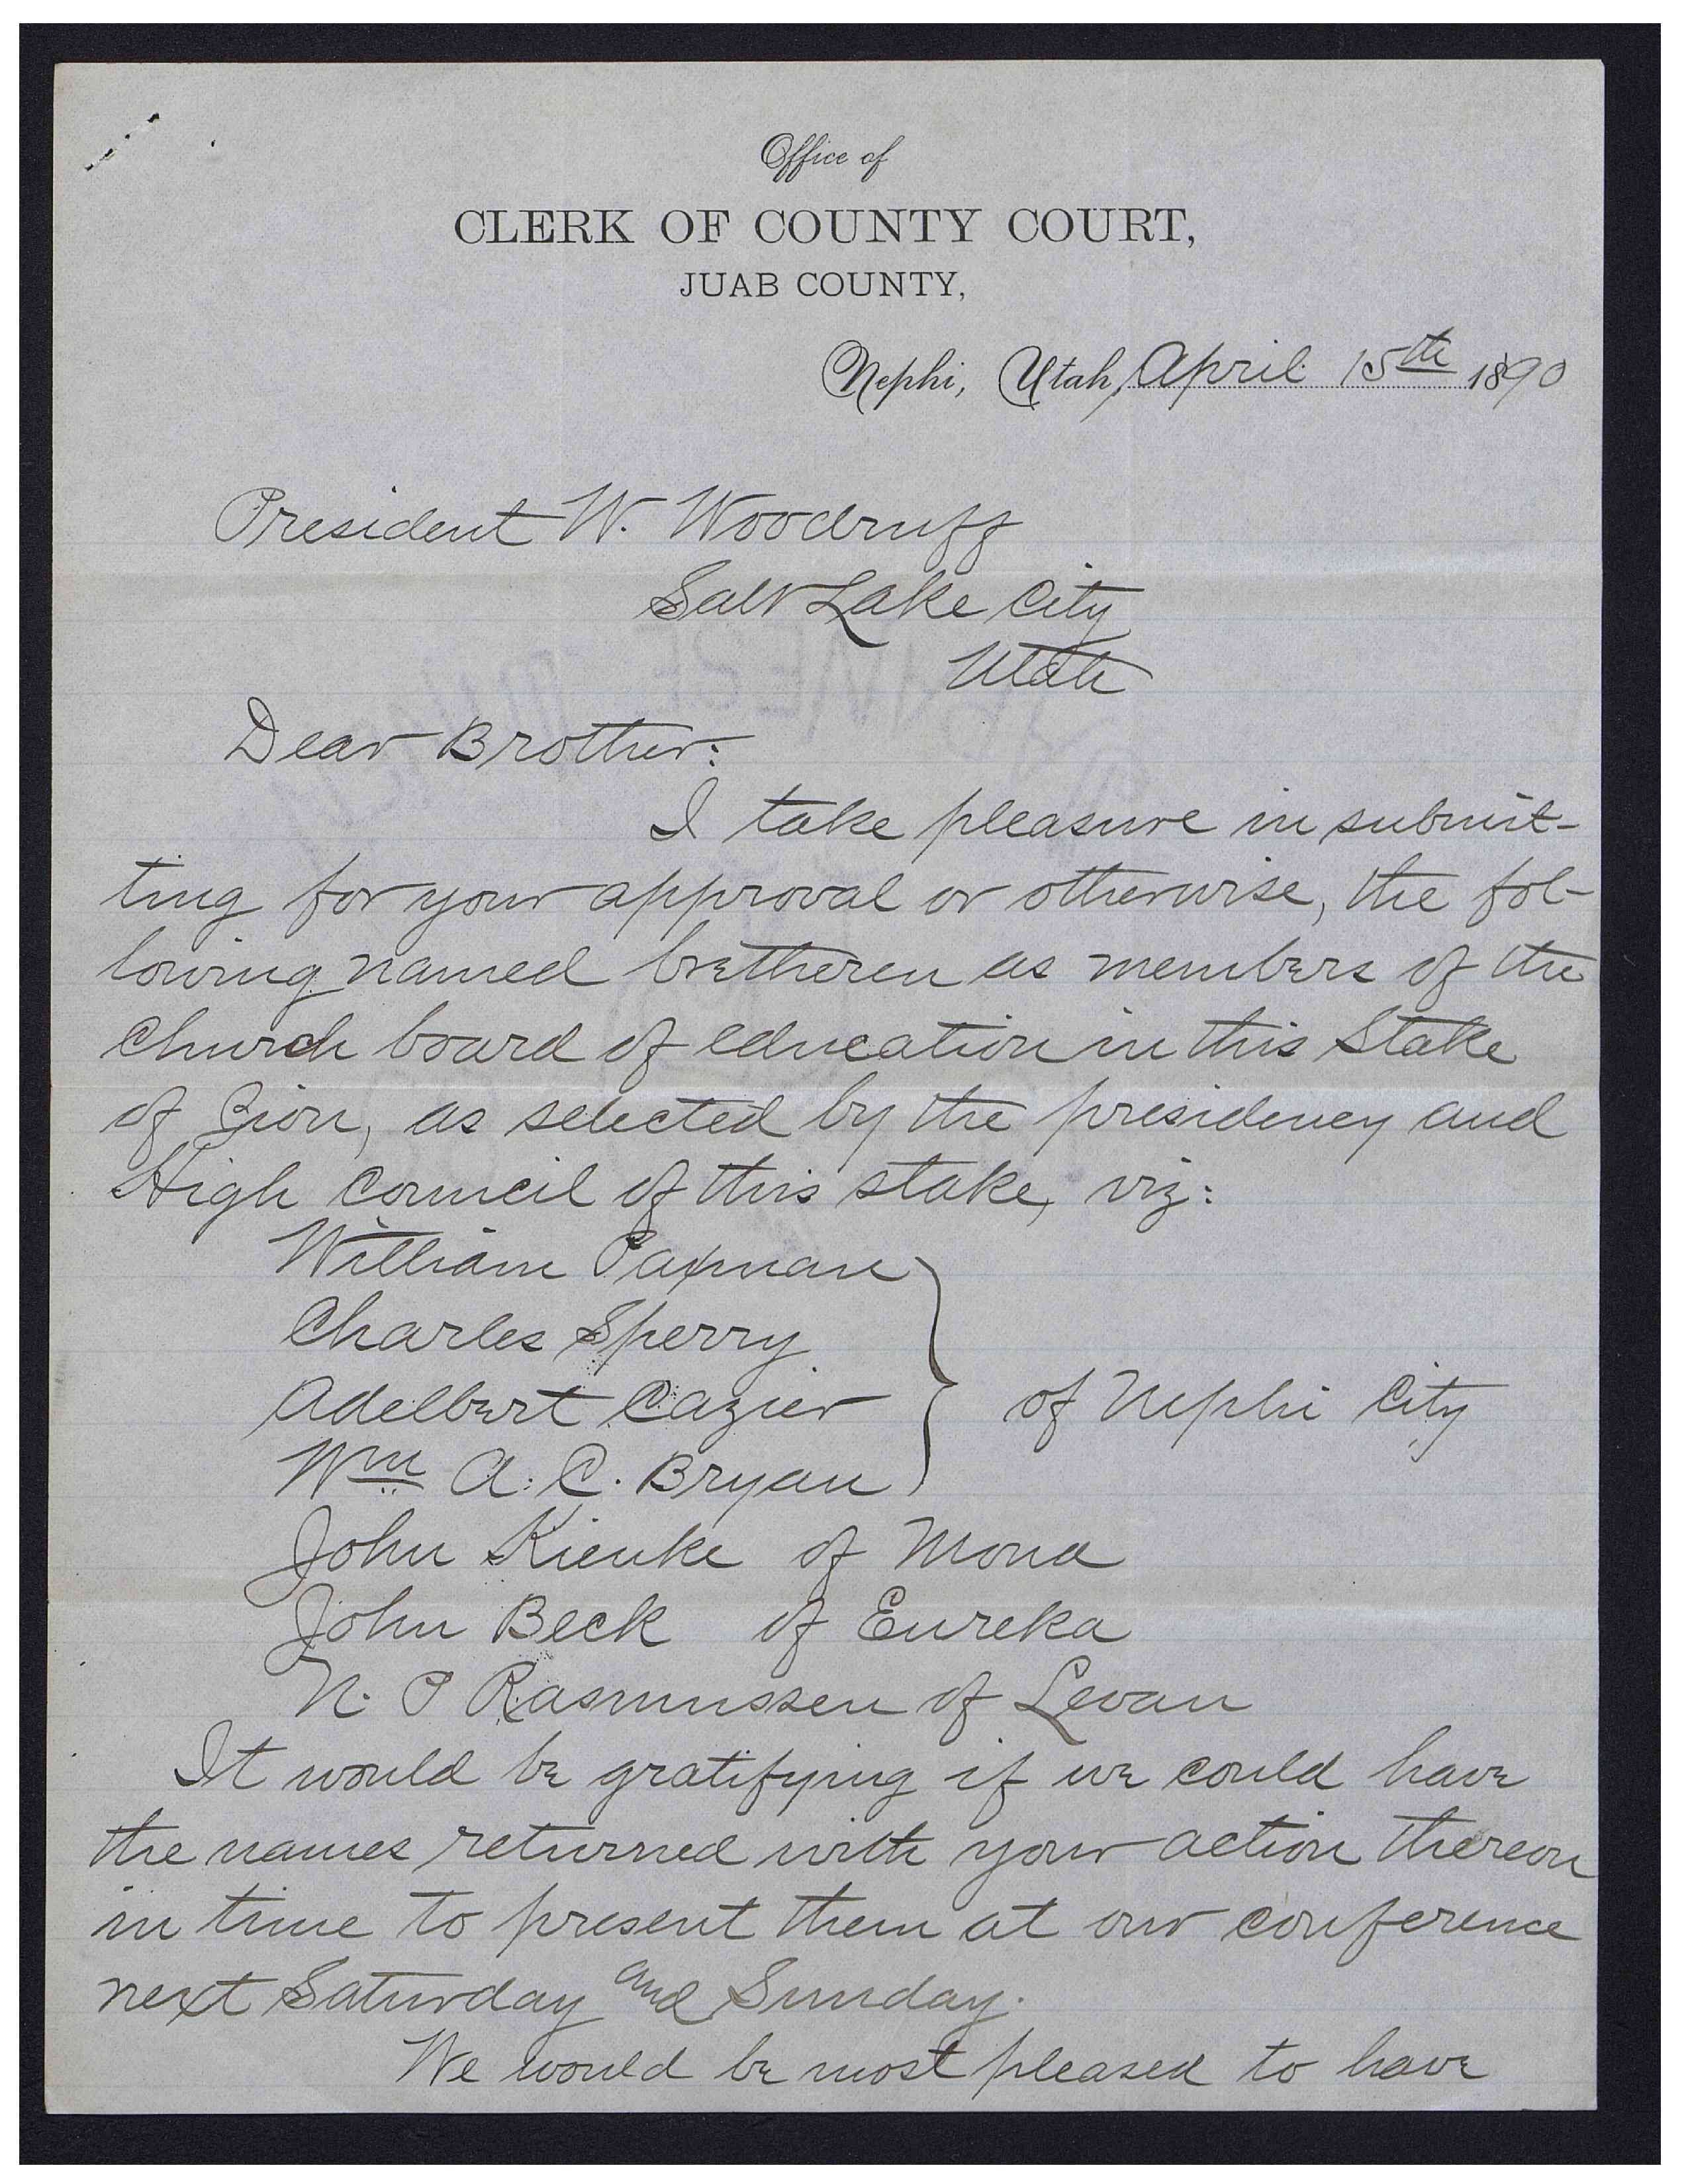 Office of
CLERK OF COUNTY COURT,
JUAB COUNTY,
Nephi, Utah, April 15th 1890
President W. Woodruff
Salt Lake City
Utah
Dear Brother:
I take pleasure in submit-
ting for your approval or otherwise, the fol-
lowing named bretheren as members of the
Church board of education in this Stake
of Zion, as selected by the presidency and
High Council of this stake, viz:
William Paxman
Charles Sperry
Adelbert Cazier } of Nephi City
Wm A. C. Bryan
John Kienke of Mona
John Beck of Eureka
N. P Rasmussen of Levan
It would be gratifying if we could have
the names returned with your action thereon
in time to present them at our conference
next Saturday and Sunday.
We would be most pleased to have